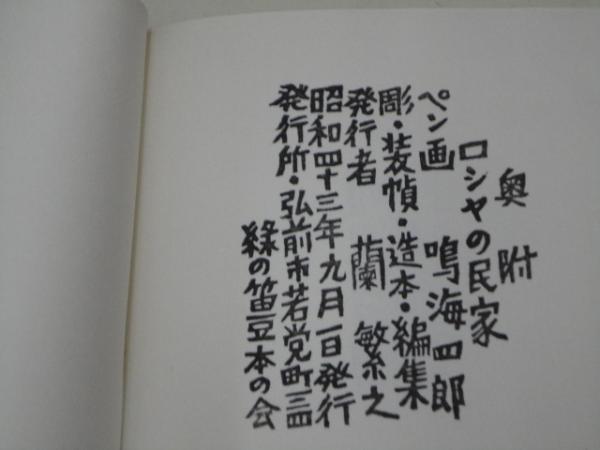 奥附
ロシヤの民家
ペン画　鳴海四郎
彫・装幀・造本・編集
発行者　蘭繁之
昭和四十三年九月一日発行
発行所・弘前市若党町三四
緑の笛豆本の会